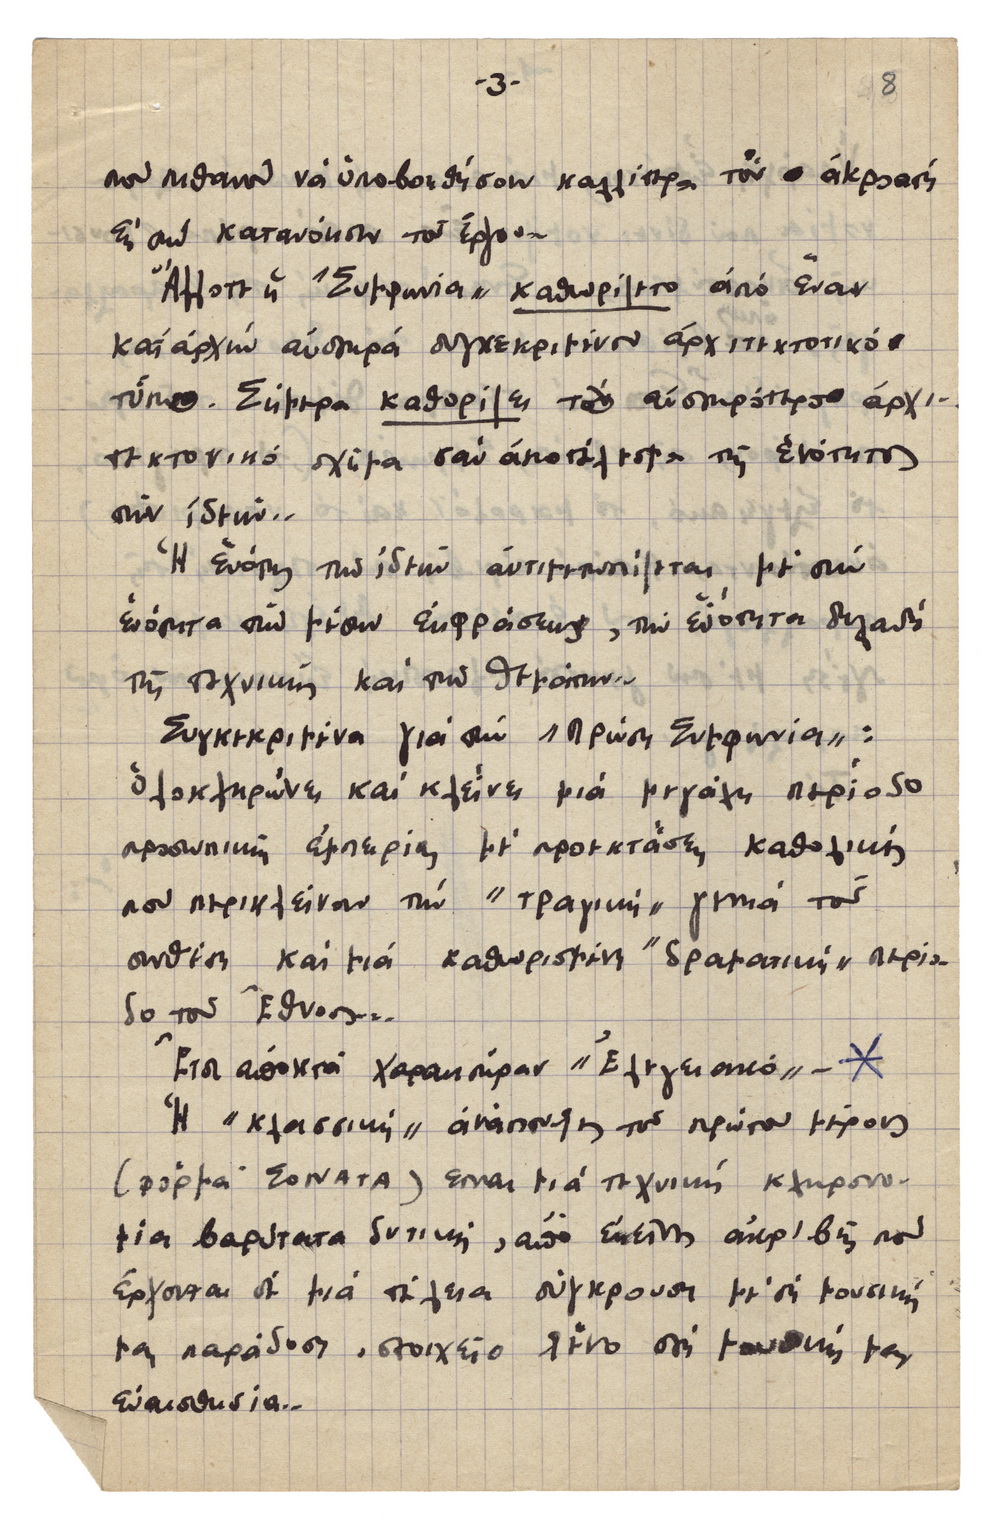 -3-
8
ποὺ πιθανὸν νά ὑποβοηθήσουν καλλίτερα τὸν ἀκροατή
εἰς τὴν κατανόησιν τοῦ ἔργου..
Ἄλλοτε ἡ "Συμφωνία" καθωρίζετο ἀπό ἕναν
κατ' ἀρχὴν αὐστηρά συγκεκριμένον ἀρχιτεκτονικό
τύπο. Σήμερα καθορίζει τὸ αὐστηρότερο ἀρχι-
τεκτονικό σχῆμα σαν ἀποτέλεσμα τῆς ἑνότητος
τῶν ἰδεῶν..
Ἡ ἑνότης τῶν ἰδεῶν ἀντιμετωπίζεται μέ τὴν
ἑνότητα τῶν μέσων ἐκφράσεως, τὴν ἑνότητα δηλαδή
τῆς τεχνικῆς και τῶν θεμάτων..
Συγκεκριμένα γιά τὴν "Πρώτη Συμφωνία" :
Ὁλοκληρώνει καί κλείνει μιά μεγάλη περίοδο
προσωπικῆς ἐμπειρίας μέ προεκτάσεις καθολικής
ποὺ περικλείνουν τήν "τραγική" γενιά τοῦ
συνθέτη καί μιά καθωρισμένη "δραματική" περίο-
δο τοῦ Ἔθνους..
Ἔτσι ἀποκτά χαρακτήραν "Ἐλεγειακό" - *
Ἡ "κλασσική" ἀνάπτυξις τοῦ πρώτου μέρους
(φόρμα ΣΟΝΑΤΑ) ειναι μιά τεχνική κληρονο-
μία βαρύτατα δυτική, ἀπό ἐκείνες ἀκριβῶς ποὺ
ἔρχονται σέ μιά τέλεια σύγκρουση μέ τή μουσική
μας παράδοση, στοιχεῖο ξένο στή μουσική μας
εὐαισθησία..